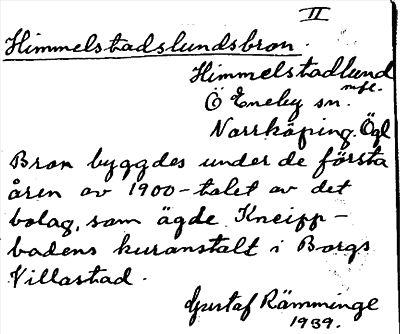 II
Himmelstadslundsbron.
Himmelstadlund
m.fl.
Ö Eneby sn.
Norrköping. Ögl
Bron byggdes under de första
åren av 1900-talet av det
bolag, som ägde Kneipp-
badens kuranstalt i Borgs
Villastad.
Gustaf Rämminge
1939.